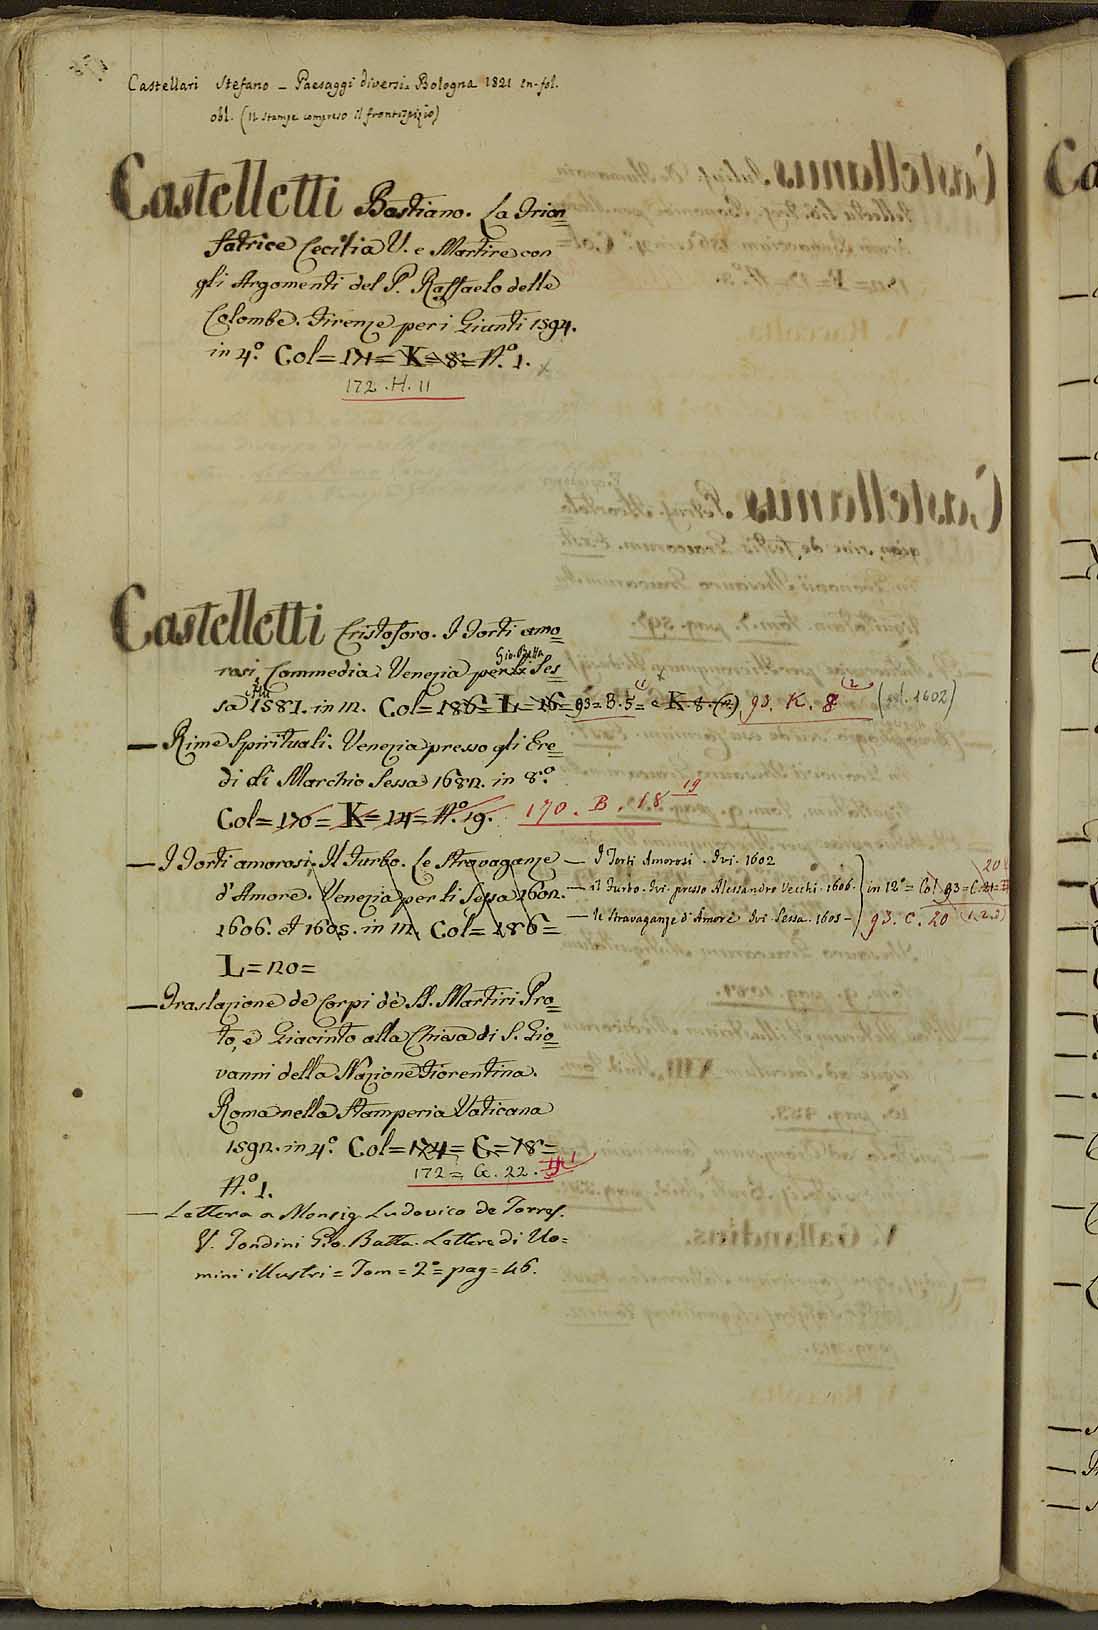 Castellari Stefano – Paesaggi diversi. Bologna 1821 in-fol.
obl. (11 stampe compreso il frontispizio)
Castelletti Bastiano. La Trion
fatrice Cecilia V. e Martire con
gli Argomenti del P. Raffaelo delle
Colombe. Firenze per i Giunti 1594.
in 4.º Col = 171 = K = 8 = N.º 1.
172 . H. 11
Castelletti Cristoforo. I Torti amo=
rosi, Commedia. Venezia per li Gio. Batta Ses=
sa 1581. in 12. Col = 186 = L = 16 = 93 = B. 5 = e K 8. 93. K. 8 (2 (ed. 1602)
— Rime Spirituali. Venezia presso gli Ere=
di di Marchio Sessa 1682. in 8.º
Col = 170 = K = 14 = N.º 19. 170. B. 18 19
— I Torti amorosi, Il Furbo. Le Stravaganze
d'Amore. Venezia per li Sessa 1602.
1606. et 1605. in 12. Col = 186 =
L = 20 =
— I Torti Amorosi . Ivi. 1602
— il Furbo. Ivi. presso Alessandro Vecchi. 1606.
— le Stravaganze d'Amore Ivi Sessa. 1605 –
in 12º = Col. 93 = C. 21 =
20
93. C. 20 (1.2.3)
— Traslazione de Corpi de SS. Martiri Pro=
to, e Giacinto alla Chiesa di S. Gio=
vanni della Nazione Fiorentina.
Roma nella Stamperia Vaticana
1592. in 4.º Col = 174 = C = 18 =
172 = G. 22.
N.º 1.
— Lettera a Monsig. Ludovico de Torres.
V. Tondini Gio. Batta. Lettere di Uo=
mini illustri = Tom = 2º = pag = 46.